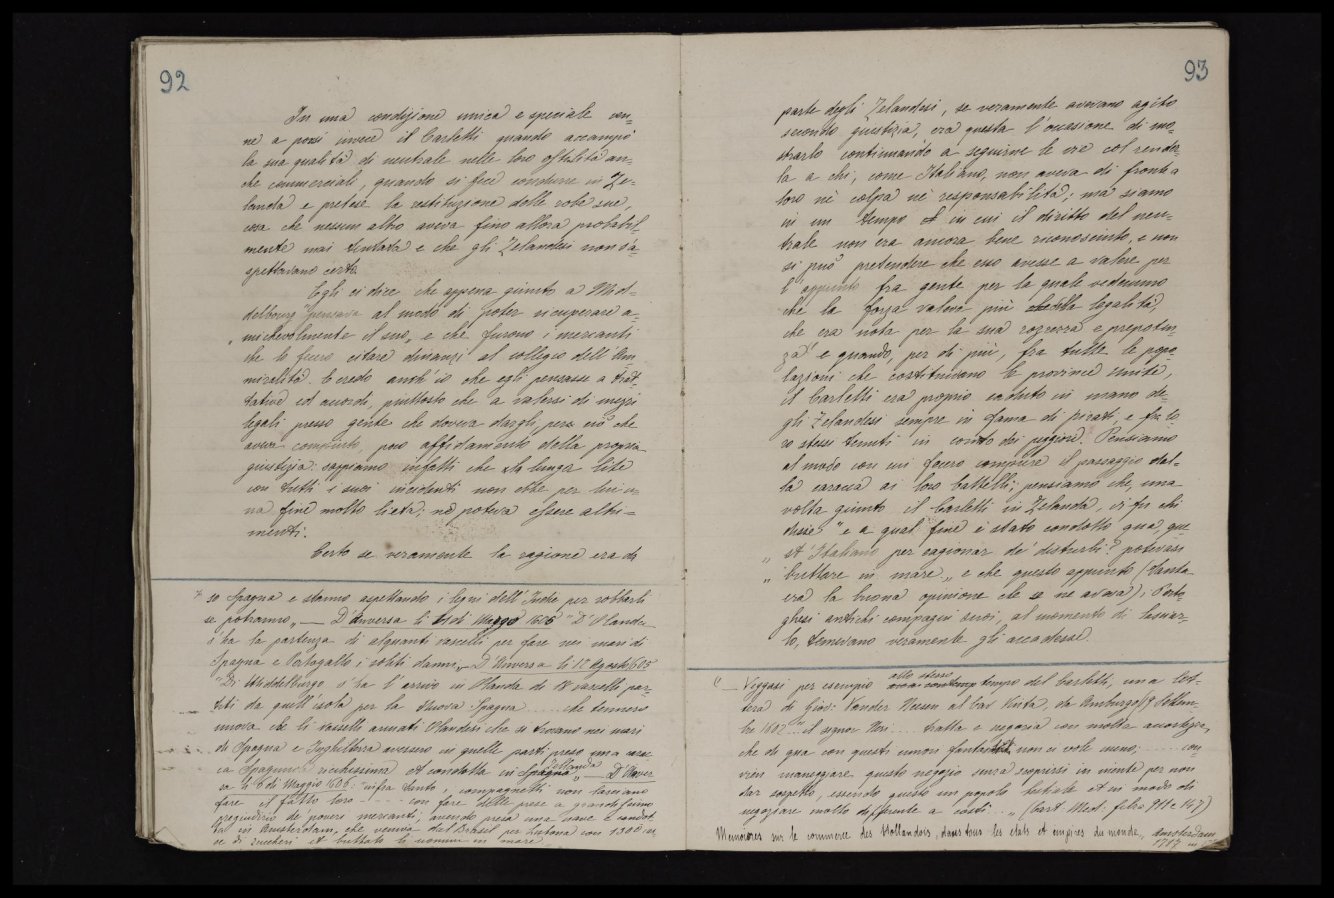 92
In una condizione unica e speciale ven=
ne a porsi invece il Carletti quando accampò
la sua qualità di neutrale nelle loro ostilità an=
che commerciali, quando si fece condurre in Ze=
landa e pretese la restituzione delle robe sue,
cosa che nessun altro aveva fino allora probabil=
mente mai tentata e che gli Zelandesi non s'a=
spettavano certo.
Egli ci dice che appena giunto a Mid=
delbourg "pensava al modo di poter ricuperare a=
"michevolmente il suo, e che furono i mercanti
che lo fecero citare dinanzi al collegio dell'Am
miralità. Credo anch'io che egli pensasse a trat=
tative ed accordi, piuttosto che a valersi di mezzi
legali presso gente che doveva dargli, per ciò che
aveva compiuto, poco affidamento della propria
giustizia: sappiamo infatti che la lunga lite
con tutti i suoi incidenti non ebbe per lui u=
na fine molto lieta: nè poteva essere altri=
menti.
Certo se veramente la ragione era da
so Spagna e stanno aspettando i legni dell'Indie per robbarli
se potranno, — D'Anversa li di Maggio 1605 "D'Olanda
s'ha la partenza di alquanti vasselli per fare nei mari di
Spagna e Portogallo i soliti danni, — D'Anversa li 12 Agosto 1605
"Di Middelburgo s'ha l'arrivo in Olanda di vasselli par=
titi da quell'isola per la Nuova Spagna ..... che tennero
nuova che li vasselli armati Olandesi che si trovano nei mari
di Spagna e Inghilterra avessero in quelle parti preso una carac
ca Spagnuola ricchissima et condotta in Spagna Zelanda" — D'Anver
sa li 6 di Maggio 1606: infra tanto i compagnetti non lasciano
fare il fatto loro ..... con fare delle prese a grandissimo
pregiudizio de' poveri mercanti, avendo presa una nave e condot
ta in Amsterdam, che veniva dal Brasil per Lisbona con 1300 cas
se di zuccheri et buttato li uomini in mare
93
parte degli Zelandesi, se veramente avevano agito
secondo giustizia, era questa l'occasione di mo=
strarlo continuando a seguirne le vie col render=
la a chi, come Italiano, non aveva di fronte a
loro nè colpa nè responsabilità; ma siamo
in un tempo in cui il diritto del neu=
trale non era ancora bene riconosciuto, e non
si può pretendere che esso avesse a valere per
l'appunto fra gente per la quale vedemmo
che la forza valeva più della legalità,
che era nota per la sua rozzezza e prepoten
za e quando, per di più, fra tutte le popo=
lazioni che costituivano le provincie unite,
il Carletti era proprio caduto in mano de=
gli Zelandesi sempre in fama di pirati, e fra lo
ro stessi tenuti in conto dei peggiori. Pensiamo
al modo con cui fecero compiere il passaggio dal=
la caracca ai loro battelli; pensiamo che, una
volta giunto il Carletti in Zelanda, vi fu chi
disse "e a qual fine è stato condotto qua, que
"st'Italiano per cagionar de' disturbi? potevasi
"buttare in mare, e che questo appunto (tanta
era la buona opinione che se ne aveva); i Porto=
ghesi antichi compagni suoi, al momento di lasciar=
lo, temevano veramente gli accadesse.
Veggasi per esempio allo stesso tempo del Carletti, una let=
tera di Giov: Vander Neesen al Cav Vinta, da Amburgo 19 Settem
bre 1602 "il signor ..... tratta e negozia con molta accortezza,
che di qua con questi umori fantastici non ci vole meno; ..... con
vien maneggiare questo negozio senza scoprirsi in niente per non
dar sospetto, essendo questo un popolo bestiale et in modo di
negoziare molto differente a costì ..." (Cart. Med. filza 911 c 147)
Memoires sur le commerce des Hollandois, dans tous les etats et empires du monde, Amsterdam
1717